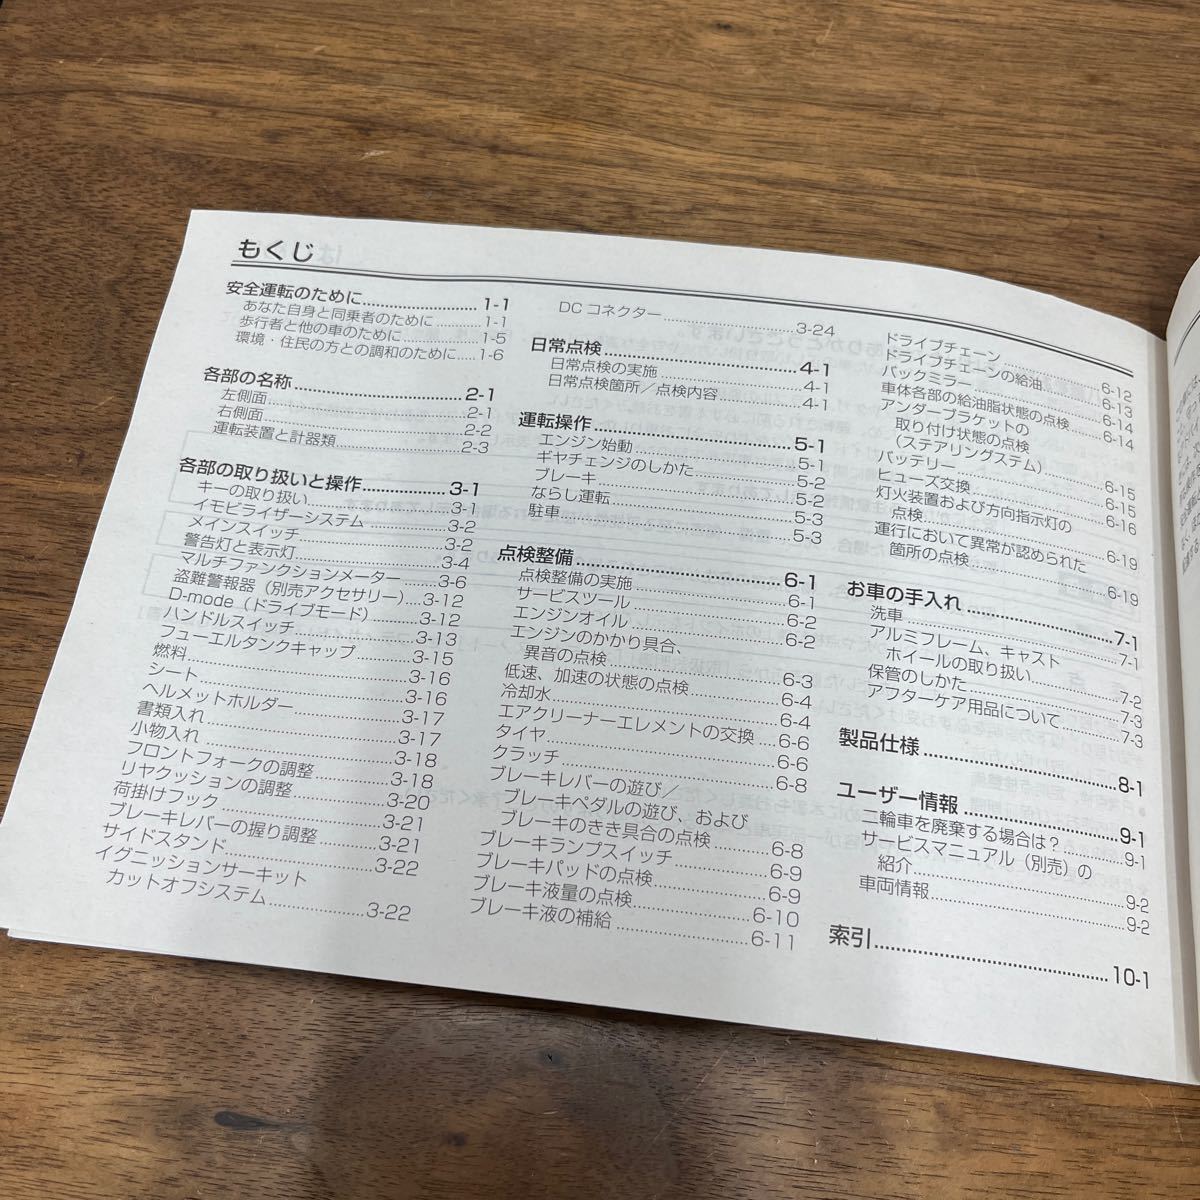 もくじ
安全運転のために 1-1
あなた自身と同乗者のために 1-1
歩行者と他の車のために 1-5
環境・住民の方との調和のために 1-6
各部の名称 2-1
左側面 2-1
右側面 2-2
運転装置と計器類 2-3
各部の取り扱いと操作 3-1
キーの取り扱い 3-1
イモビライザーシステム 3-2
メインスイッチ 3-2
警告灯と表示灯 3-4
マルチファンクションメーター 3-6
盗難警報器（別売アクセサリー） 3-12
D-mode（ドライブモード） 3-12
ハンドルスイッチ 3-13
フューエルタンクキャップ 3-15
燃料 3-16
シート 3-16
ヘルメットホルダー 3-17
書類入れ 3-17
小物入れ 3-18
フロントフォークの調整 3-18
リヤクッションの調整 3-20
荷掛けフック 3-21
ブレーキレバーの握り調整 3-21
サイドスタンド 3-22
イグニッションサーキット
カットオフシステム 3-22
DCコネクター 3-24
日常点検 4-1
日常点検の実施 4-1
日常点検箇所／点検内容 4-1
運転操作 5-1
エンジン始動 5-1
ギヤチェンジのしかた 5-2
ブレーキ 5-2
ならし運転 5-3
駐車 5-3
点検整備 6-1
点検整備の実施 6-1
サービスツール 6-2
エンジンオイル 6-2
エンジンのかかり具合、
異音の点検 6-3
低速、加速の状態の点検 6-4
冷却水 6-4
エアクリーナーエレメントの交換 6-6
タイヤ 6-6
クラッチ 6-8
ブレーキレバーの遊び／
ブレーキペダルの遊び、および
ブレーキのきき具合の点検 6-8
ブレーキランプスイッチ 6-9
ブレーキパッドの点検 6-9
ブレーキ液量の点検 6-10
ブレーキ液の補給 6-11
ドライブチェーン 6-12
ドライブチェーンの給油 6-13
バックミラー 6-14
車体各部の給油脂状態の点検 6-14
アンダーブラケットの
取り付け状態の点検
（ステアリングステム） 6-15
バッテリー 6-15
ヒューズ交換 6-16
灯火装置および方向指示灯の
点検 6-19
運行において異常が認められた
箇所の点検 6-19
お車の手入れ 7-1
洗車 7-1
アルミフレーム、キャスト
ホイールの取り扱い 7-2
保管のしかた 7-3
アフターケア用品について 7-3
製品仕様 8-1
ユーザー情報 9-1
二輪車を廃棄する場合は？ 9-1
サービスマニュアル（別売）の
紹介 9-2
車両情報 9-2
索引 10-1